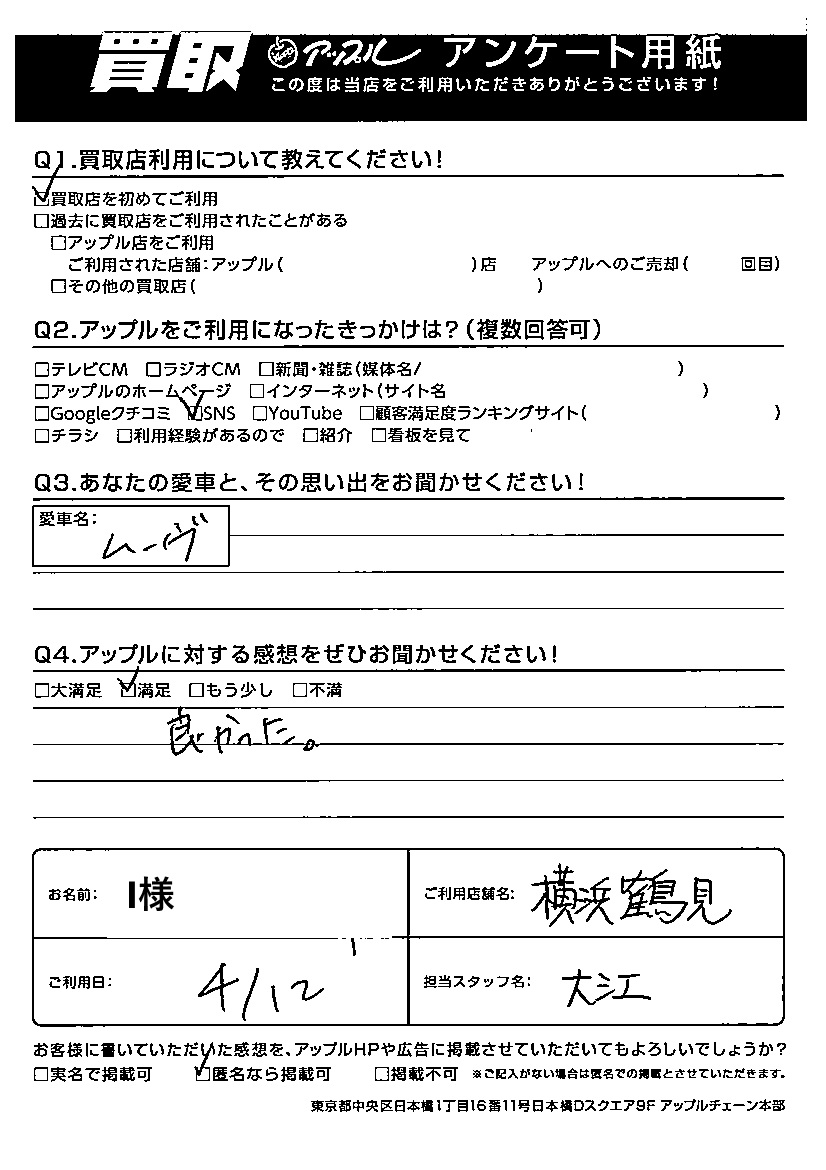 買取 アップル アンケート用紙
この度は当店をご利用いただきありがとうございます!
Q1.買取店利用について教えてください!
☑買取店を初めてご利用
□過去に買取店をご利用されたことがある
□アップル店をご利用
ご利用された店舗:アップル( )店 アップルへのご売却( 回目)
□その他の買取店( )
Q2.アップルをご利用になったきっかけは?(複数回答可)
□テレビCM □ラジオCM □新聞・雑誌(媒体名/ )
□アップルのホームページ □インターネット(サイト名 )
□Googleクチコミ ☑SNS □YouTube □顧客満足度ランキングサイト( )
□チラシ □利用経験があるので □紹介 □看板を見て
Q3.あなたの愛車と、その思い出をお聞かせください!
愛車名:
ムーヴ
Q4.アップルに対する感想をぜひお聞かせください!
□大満足 ☑満足 □もう少し □不満
良かった。
お名前: I様 ご利用店舗名: 横浜鶴見
ご利用日: 4/12 担当スタッフ名: 大江
お客様に書いていただいた感想を、アップルHPや広告に掲載させていただいてもよろしいでしょうか?
□実名で掲載可 ☑匿名なら掲載可 □掲載不可 ※ご記入がない場合は匿名での掲載とさせていただきます。
東京都中央区日本橋1丁目16番11号日本橋Dスクエア9F アップルチェーン本部